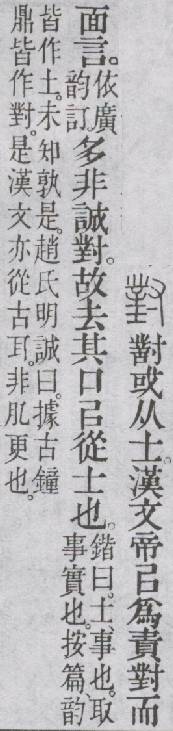 對或从士。漢文帝㠯爲責對而
面言。依廣韵訂。多非誠對。故去其口㠯從士也。鍇曰。士、事也。取事實也。按篇、韵
皆作土。未知孰是。趙氏明誠曰。據古鐘
鼎皆作對。是漢文亦從古耳。非肊更也。